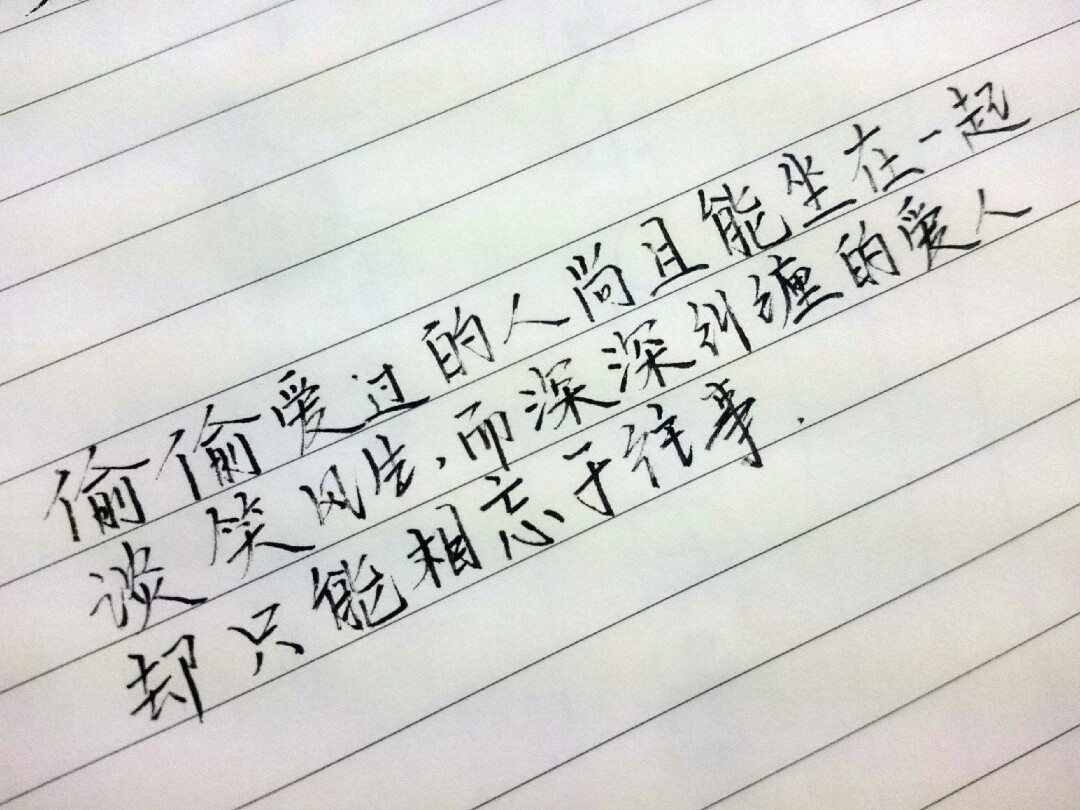 偷偷爱过的人尚且能坐在一起
谈笑风生,而深深纠缠的爱人
却只能相忘于往事.